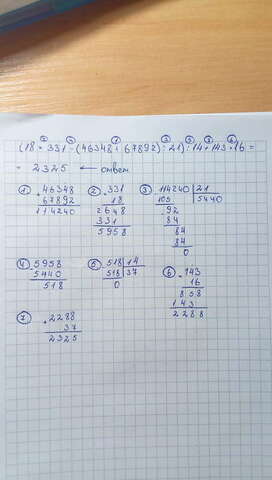 ② ④ ① ③ ⑤ ⑦ ⑥
(18 · 331 - (46348 + 67892) : 21) : 14 + 143 · 16 =
= 2325 ← ответ
① + 46348
67892
114240
② · 331
18
2648
331
5958
③ 114240 | 21
105 | 5440
92
84
84
84
0
④ 5958
5440
518
⑤ 518 | 14
518 | 37
0
⑥ · 143
16
858
143
2288
⑦ + 2288
37
2325